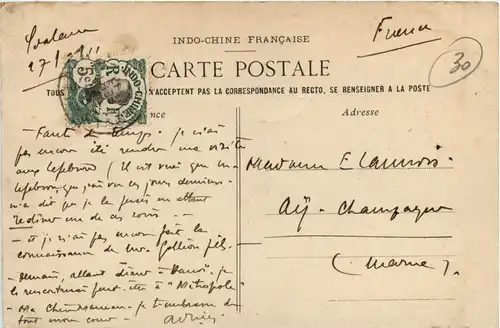 27/
France
INDO-CHINE FRANÇAISE
30
CARTE POSTALE
TOUS N'ACCEPTENT PAS LA CORRESPONDANCE AU RECTO, SE RENSEIGNER A LA POSTE
INDO-CHINE
Adresse
- Faute de temps. je n'ai
pas encore été rendre une visite
aux Lefebvre (Il est vrai que
Lefebvre, que j'ai vu ces jours derniers
m'a dit que je le ferais en allant
un de ces soirs. -
- et je n'ai pas encore fait la
connaissance de Mr. fils -
- Demain, allant dîner à Hanoï - je
le rencontrerai peut-être à "Métropole"
- Ma - je t'embrasse de
tout mon cœur -
Madame E.
Aÿ - Champagne
(Marne).